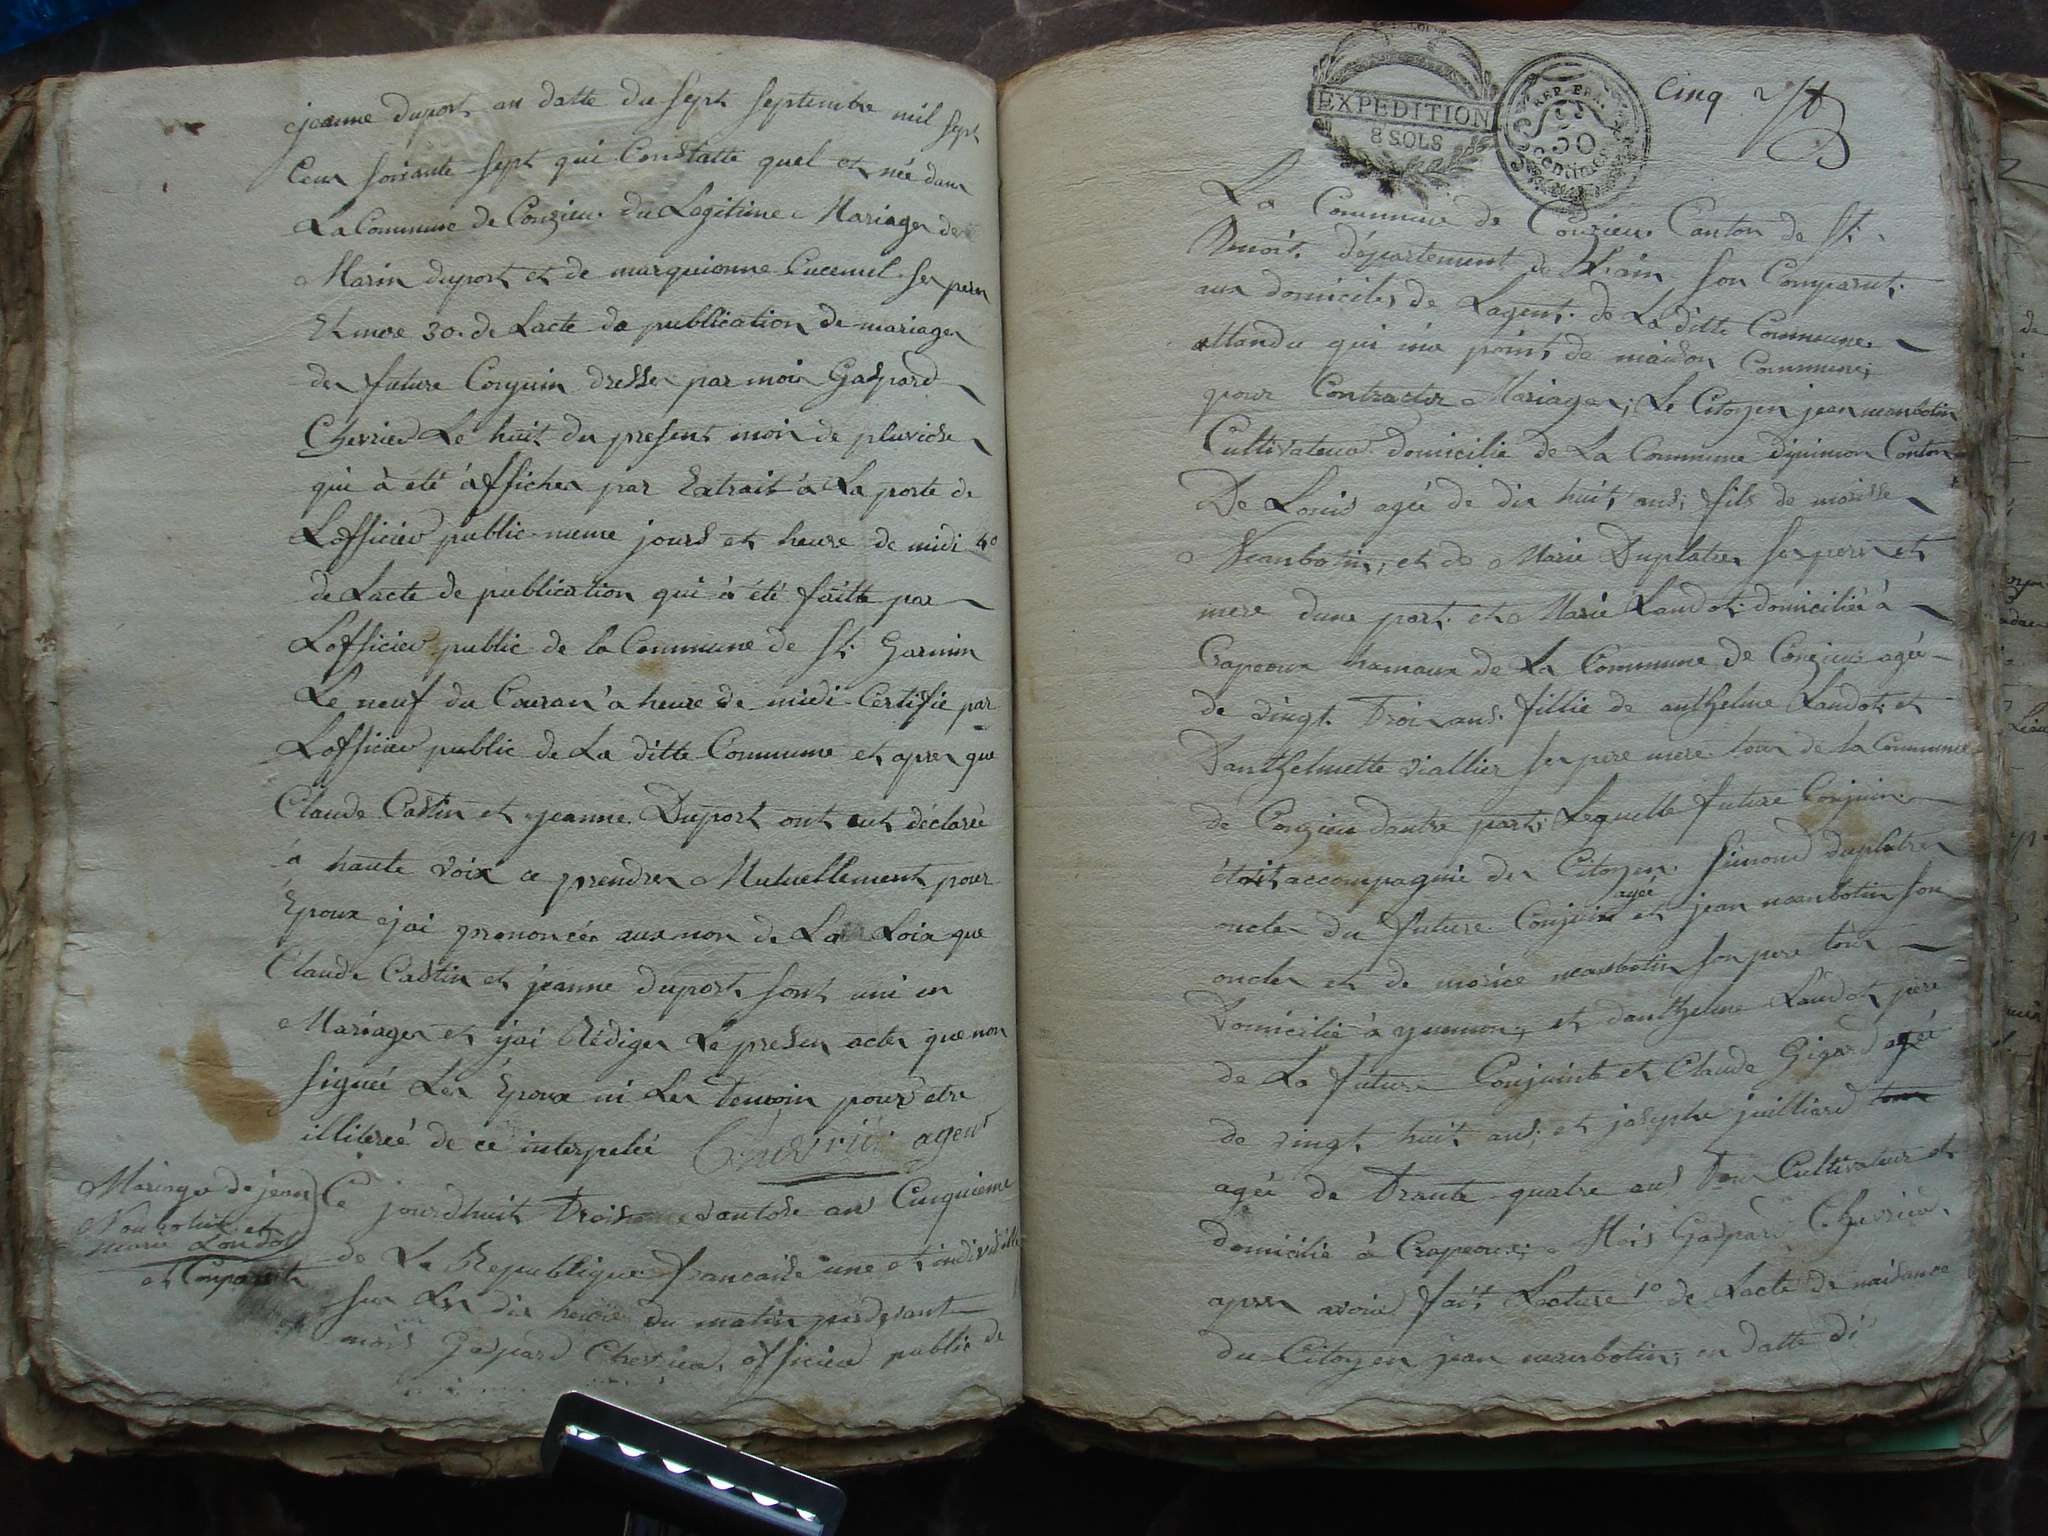 jeanne duport an datte du sept septembre mil sept
Cent soixante sept qui Constatte quel et née dans
La Commune de Conzieu du Legitime Mariage de
Marin duport et de marquionne Cucemel ses peres
Et mere 30. de Lacte de publication de mariage
des future Conjuin dresser par moi Gaspard
Chevrier Le huit du present mois de pluviose
qui à été affichea par Extrait à La porte de
Lofficier public meme jours et heure de midi 4°
de Lacte de publication qui à été faitte par
Lofficier public de la Commune de St. Garmin
Le neuf du Couran à heure de midi Certifie par
Lofficier public de La ditte Commune et apres que
Claude Castin et jeanne Duport ont eut déclarée
à haute voix ce prendre Mutuellement pour
Epoux jai prononcée aux non de La Loix que
Claude Castin et jeanne duport sont uni en
Mariage et jai Rédiger Le presen acte que non
signée Les Epoux ni Les temoin pour etre
illiterée de ce interpelée Chevrier agent
Mariage de jean
Nambotin et
marie Landot
et Conparent
Ce jourdhuit Trois ventose an Cinquieme
de La Republique francaise une et indivisible
sur Les dix heure du matin pardevant
mois Gaspard Chevrier, officier public de
EXPEDITION
8 SOLS
REP. FRA.
50
centimes
Cinq
La Commune de Conzieu Canton de St.
Benoit département de Lain son Comparut
aux domiciles de Lagent de La ditte Commune
attandu qui nia point de maison Commune,
pour Contracter Mariage; Le Citoyen jean nambotin
Cultivateur domicilié de La Commune dijnimon Conton
De Louis agée de dix huit ans fils de morisse
Nambotin, et de Marie Duplatre ses peres et
mere dune part et Marie Landot domiciliée à
Crapeoux hamaux de La Commune de Conzieu agée
de vingt Trois ans fillie de anthelme Landot et
Danthelmette viallier ses pere mere tous de la Commune
de Conzieu dautre part, Lequelle future Conjuin
étoit accompagnié des Citoyen Simond duplatre
oncle du future Conjuin agée et jean nambotin son
oncle et de morice nambotin son pere tous
Domicilié à ynimon, et danthelme Landot père
de La future Conjuinte et Claude Gigard agée
de vingt huit ans, et josephe juilliard tous
agée de Trante quatre ans Tous Cultivateur et
domicilié à Crapeoux; Mois Gaspard Chevrier,
apres avoir fait Lecture 1° de Lacte de naisance
du Citoyen jean nambotin, en datte di